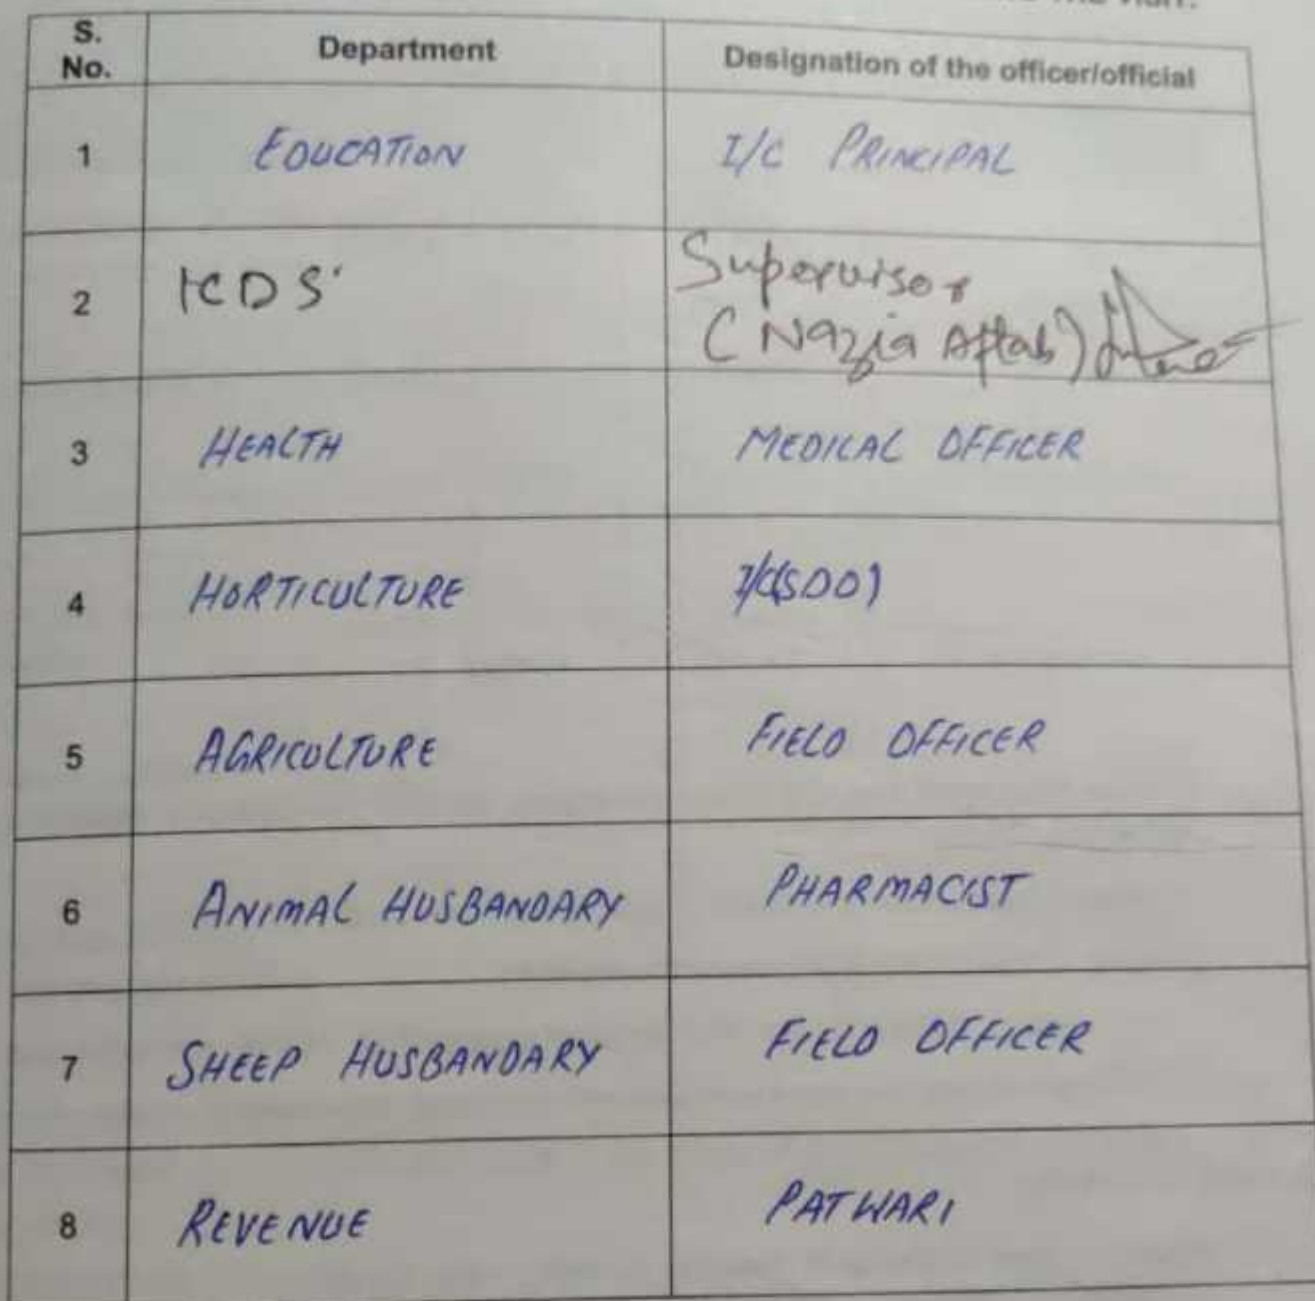 S. No. Department Designation of the officer/official
1 EDUCATION I/C PRINCIPAL
2 ICDS Supervisor
(Nazia Aftab)
3 HEALTH MEDICAL OFFICER
4 HORTICULTURE I/C(SDO)
5 AGRICULTURE FIELD OFFICER
6 ANIMAL HUSBANDARY PHARMACIST
7 SHEEP HUSBANDARY FIELD OFFICER
8 REVENUE PATWARI